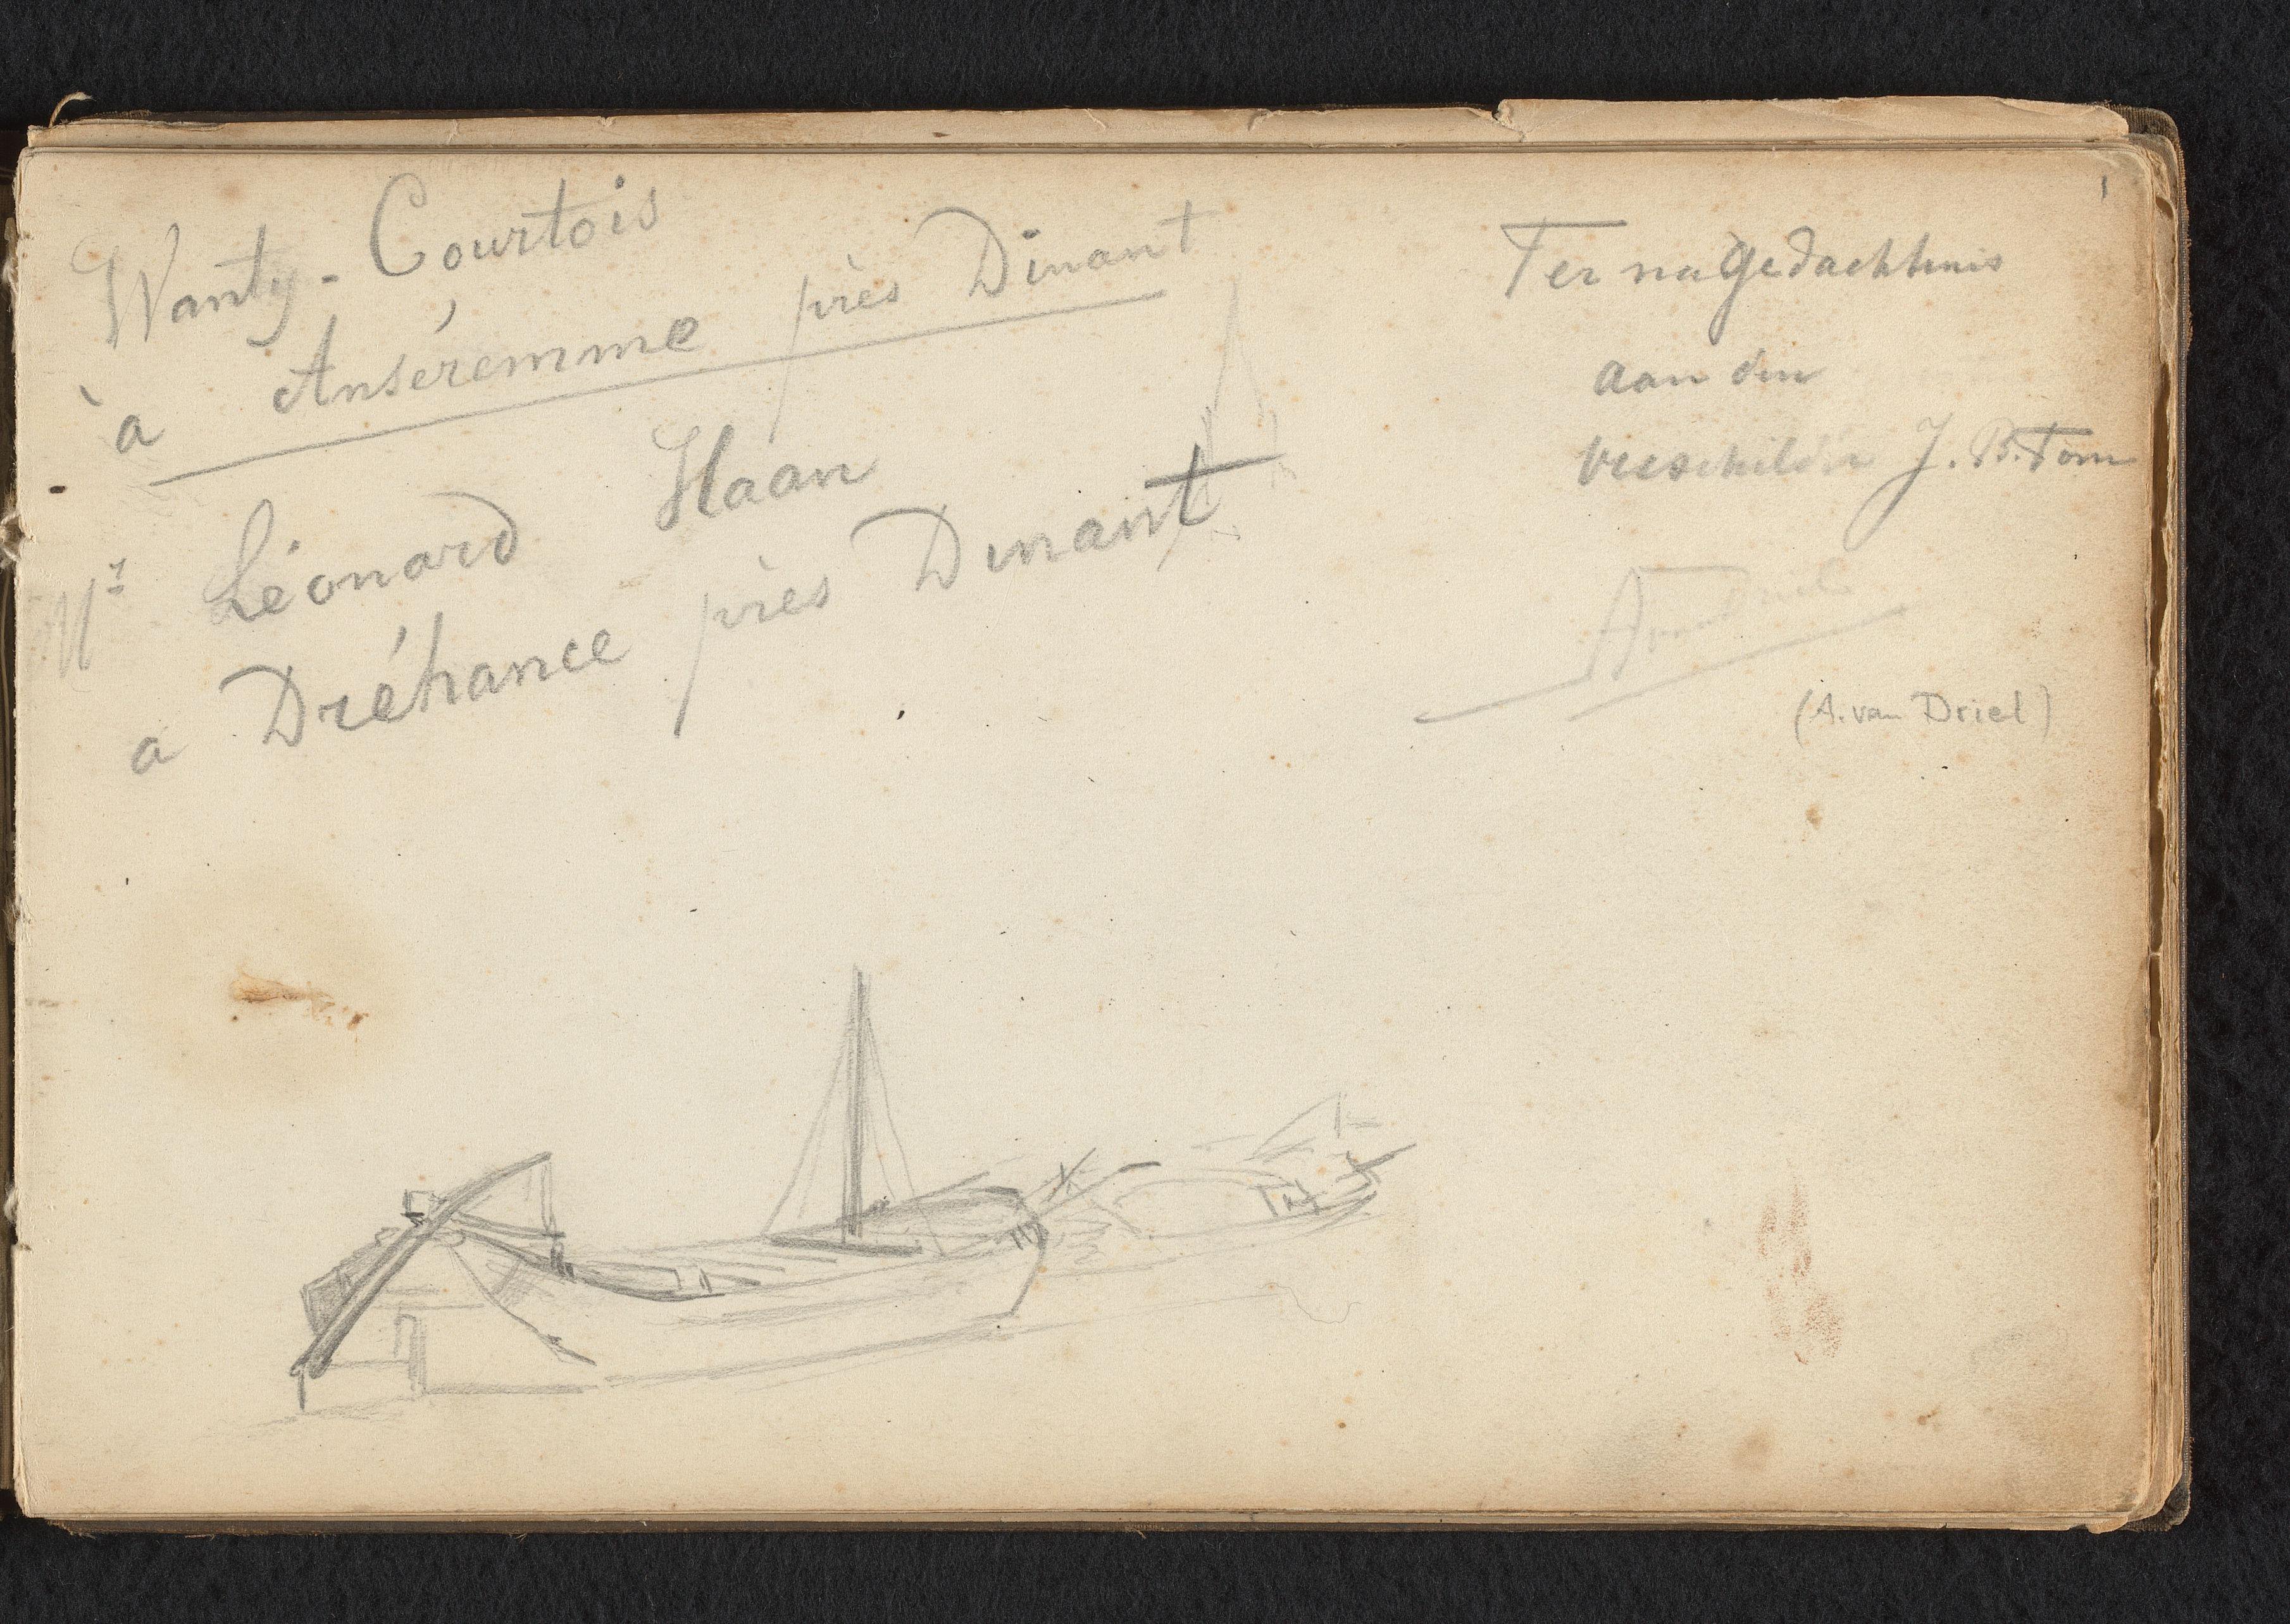 Wanty - Courtois
à Anséremme près Dinant
Mr Léonard Haan
a Dréhance près Dinant
1
Ter nagedachtenis
aan den
veeschilder J. B. Tom
A van Driel
(A. van Driel)